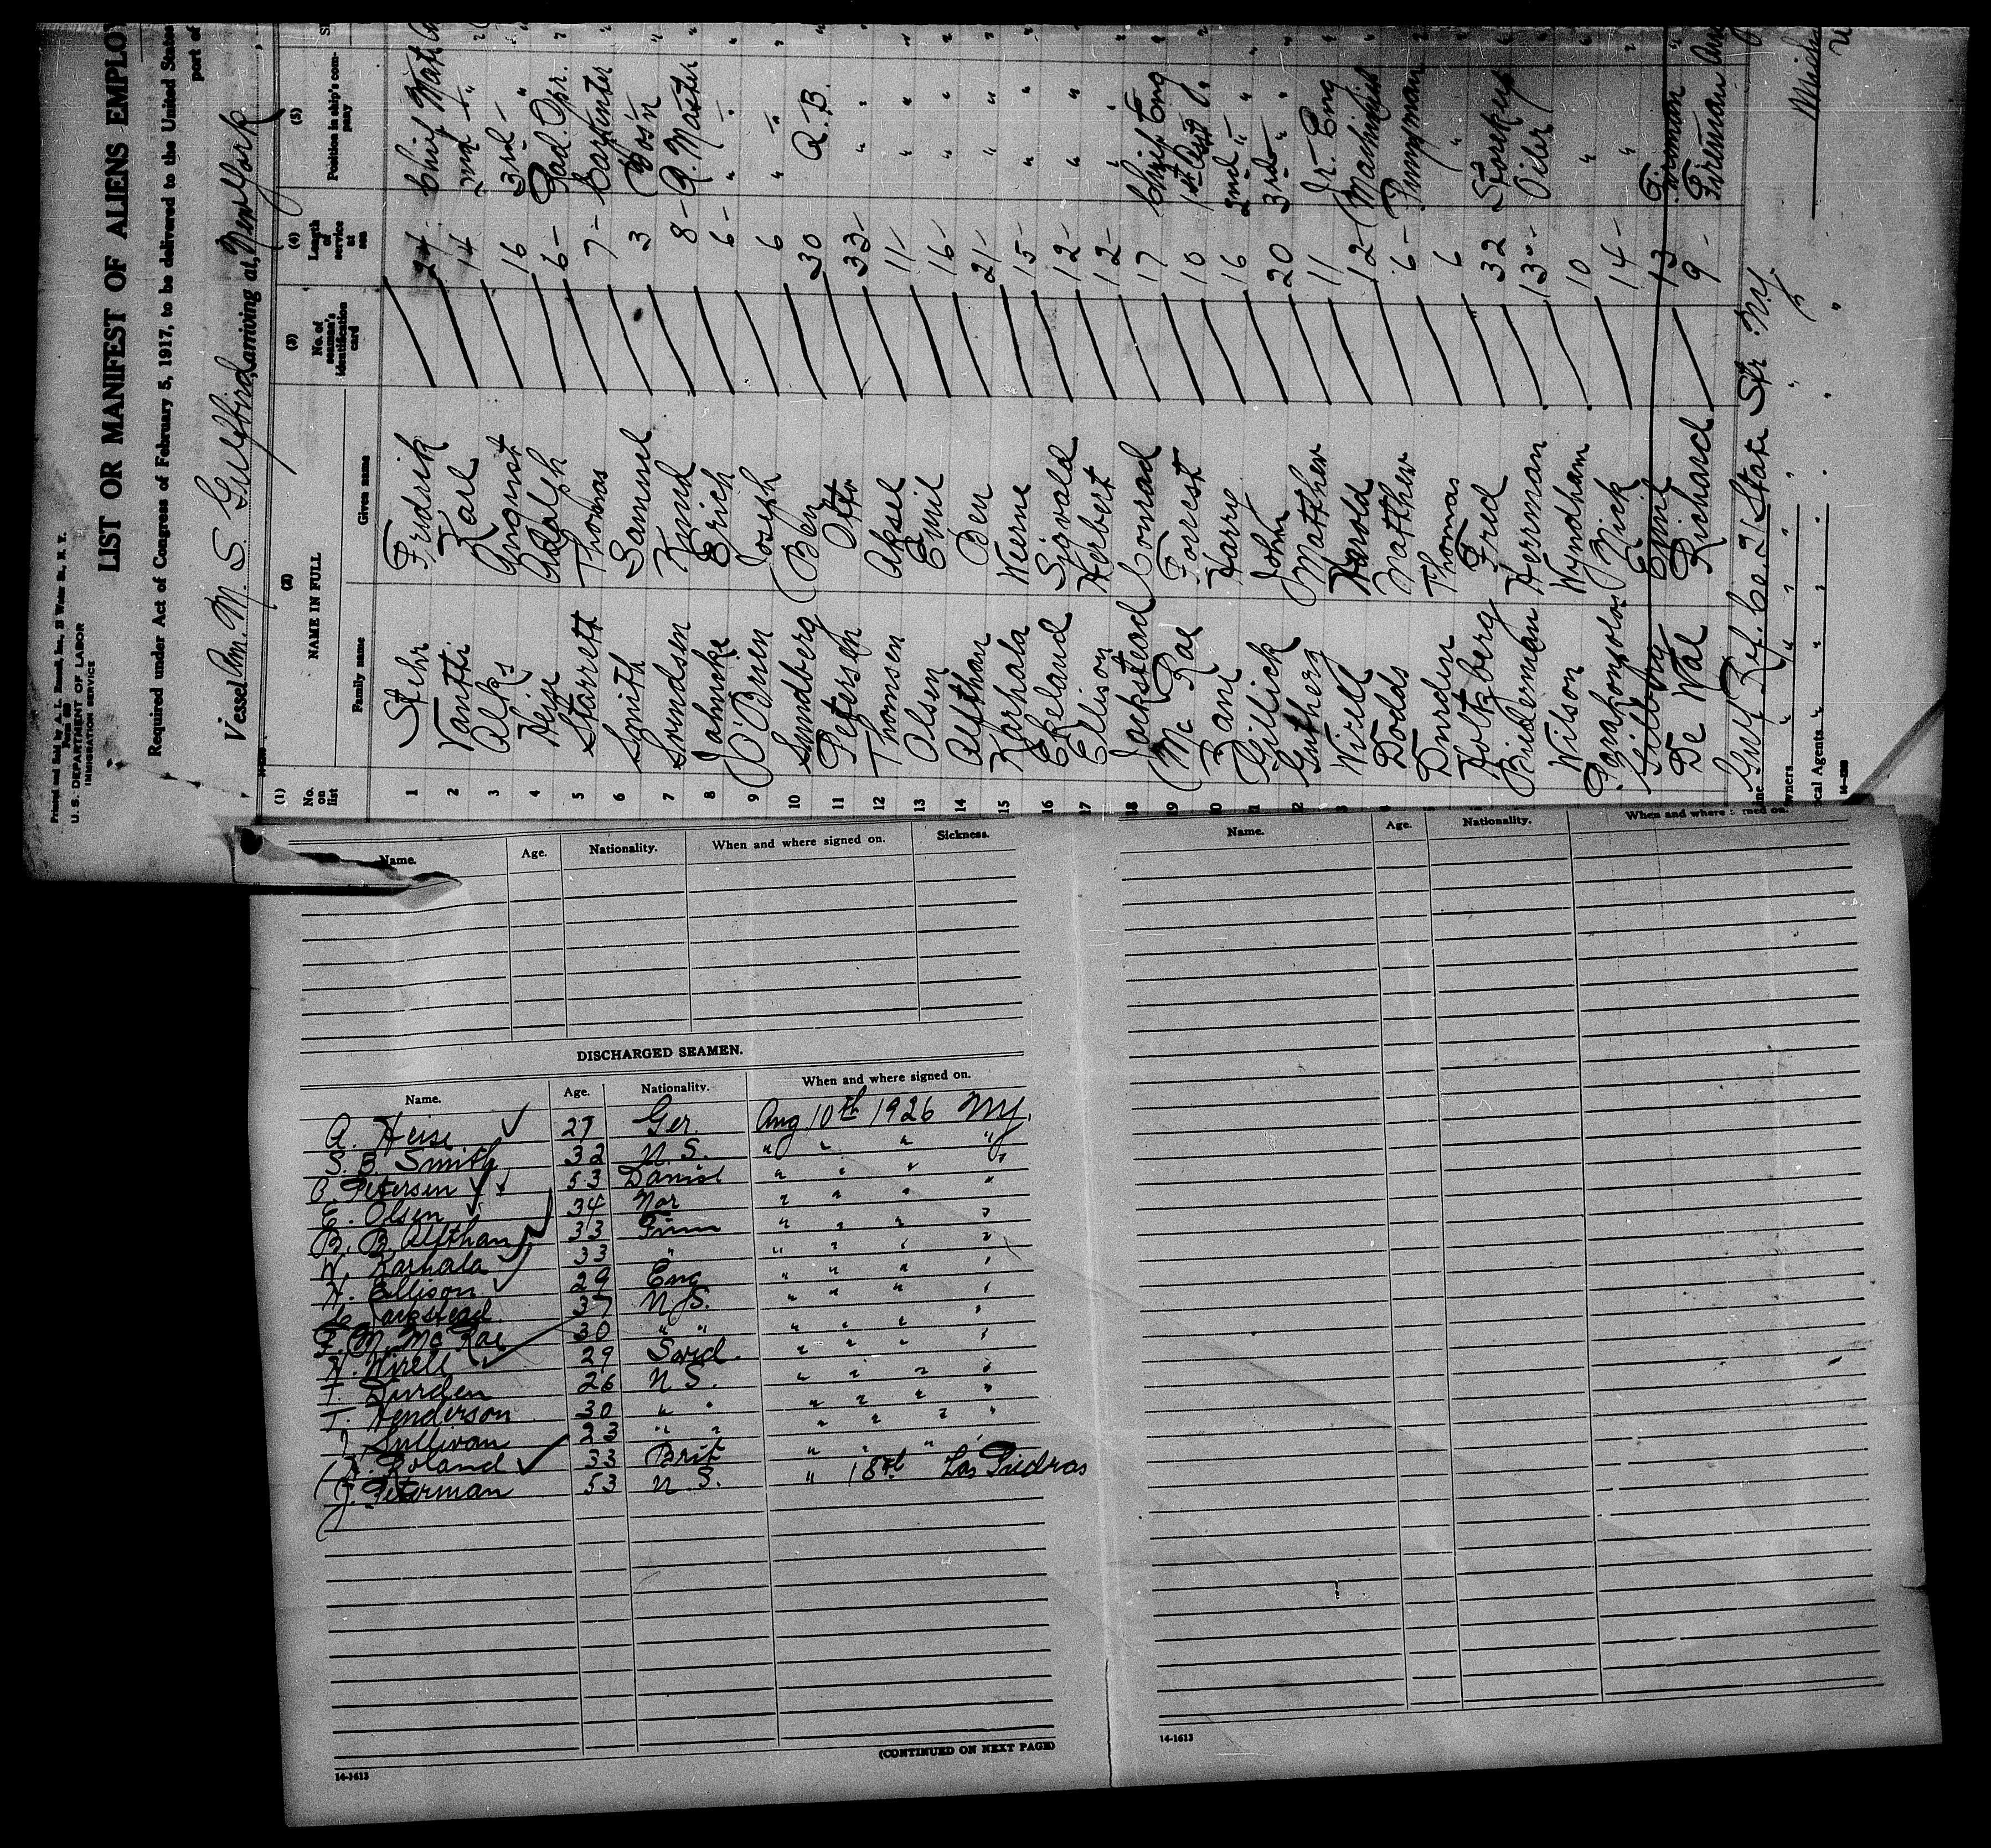 Printed and Sold by A. L. Russell, Inc., 32 Water St., N. Y.
U. S. DEPARTMENT OF LABOR
IMMIGRATION SERVICE
LIST OR MANIFEST OF ALIENS EMPLO
Required under Act of Congress of February 5, 1917, to be delivered to the United States
port of
Vessel Am. M. S. Gulfbird, arriving at New York,
(1) No. on list (2) NAME IN FULL Family name Given name (3) No. of seaman's identification card (4) Length of service at sea (5) Position in ship's company
1 Stehr Fredrik 24 Chief Mate
2 Vantti Karl 14 2nd "
3 Alks August 16 3rd "
4 Heise Adolph 6 Rad. Opr.
5 Starrett Thomas 7 Carpenter
6 Smith Sammel 3 Bos'n
7 Smndsen Knud 8 Q. Master
8 Jahnnke Erich 6 "
9 O'Brien Joseph 6 "
10 Sundberg Ben 30 A. B.
11 Petersen Otto 33 " "
12 Thomsen Aksel 11 " "
13 Olsen Emil 16 " "
14 Alfthan Ben 21 " "
15 Karhala Weerne 15 " "
16 Ekeland Sigvald 12 " "
17 Ellison Herbert 12 " "
18 Jackstead Conrad 17 Chief Eng
19 Mc Rae Forrest 10 1st Asst "
20 Harry 16 2nd " "
21 Gillick John 20 3rd " "
22 Gutherg Mathew 11 Jr. Eng
23 Wirell Harold 12 Machinist
24 Dodds Mathew 6 Pumpman
Dnrdin Thomas 6 "
Holtzberg Fred 32 Storekup
Biederman Herman 13 Oiler
Wilson Wyndham 10 "
Nick 14 "
Emil 13 Fireman
De Wal Richard 9 Fireman
Gulf Rf. Co. 21 State Str. N.Y.
wners " " " " "
ocal Agents " " " " "
Name. Age. Nationality. When and where signed on. Sickness.
Name. Age. Nationality. When and where signed on.
DISCHARGED SEAMEN.
Name. Age. Nationality. When and where signed on.
A. Heise 27 Ger. Aug 10th 1926 NY.
S. B. Smith 32 U. S. " " " "
O. Petersen 53 Danish " " " "
E. Olsen 34 Nor " " " "
B. B. Alfthan 33 Finn " " " "
W. Karhala 33 " " " " "
H. Ellison 29 Eng " " " "
C. Jackstead 37 U. S. " " " "
F. M. Mc Rae 30 " " " " " "
H. Wirell 29 Swed. " " " "
T. Durden 26 U. S. " " " "
T. Henderson 30 " " " " " "
J. Sullivan 23 " " " " " "
R. Roland 33 Brit " " " "
J. Peterman 53 U. S. " 18th Las Piedras
(CONTINUED ON NEXT PAGE)
14-1613
14-1613